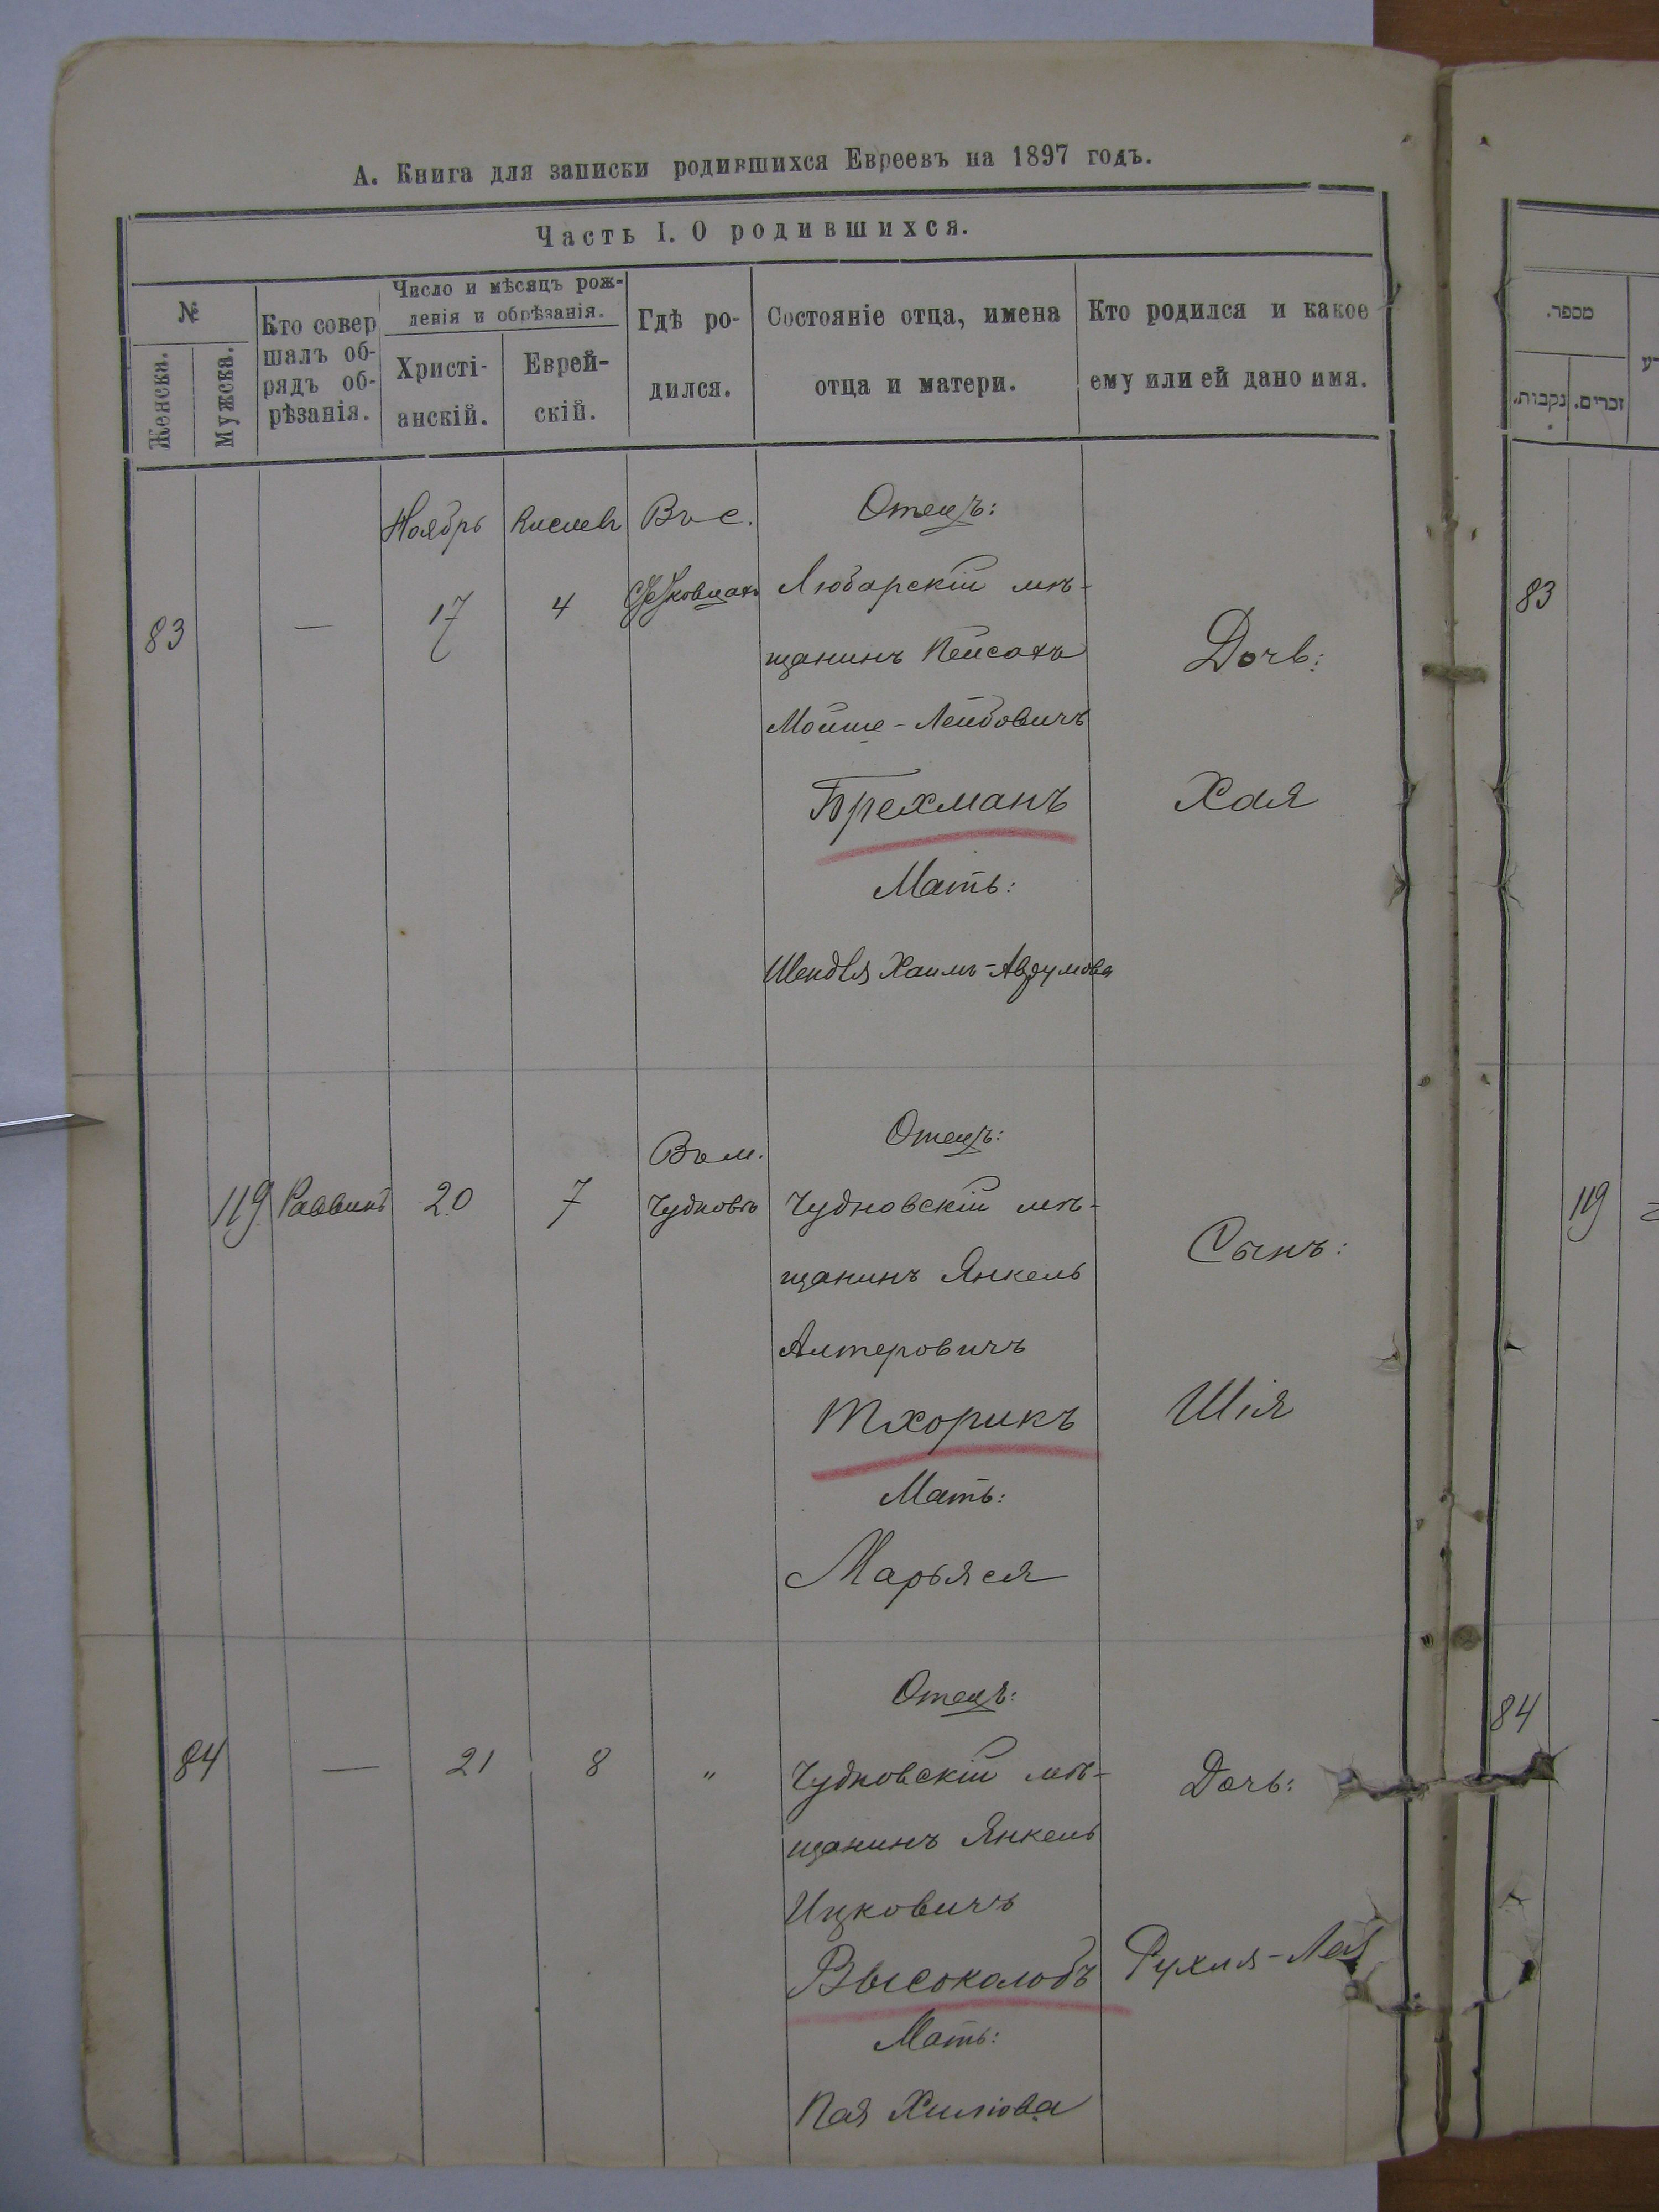 А. Книга для записки родившихся Евреевъ на 1897 годъ.
Часть I. О родившихся.
№
Женска.
Мужска.
Кто совер
шалъ об-
рядъ об-
рѣзанія.
Число и мѣсяцъ рож-
денія и обрѣзанія.
Христі-
анскій.
Еврей-
скій.
Гдѣ ро-
дился.
Состояніе отца, имена
отца и матери.
Кто родился и какое
ему или ей дано имя.
83
—
Ноябрь
17
Кислевъ
4
Въ с.
Отецъ:
Любарскій мѣ-
щанинъ Пейсахъ
Мойше-Лейбовичъ
Брехманъ
Мать:
Шендля Хаимъ-Аврумова
Дочь:
Хая
119
Раввинъ
20
7
Въ м.
Чудновѣ
Отецъ:
Чудновскій мѣ-
щанинъ Янкель
Алтеровичъ
Тхорикъ
Мать:
Марьяся
Сынъ:
Шія
84
—
21
8
"
Отецъ:
Чудновскій мѣ-
щанинъ Янкель
Ицковичъ
Высоколобъ
Мать:
Пая Хилiова
Дочь:
Рухля-Лея
מספר.
נקבות.
זכרים.
83
119
84